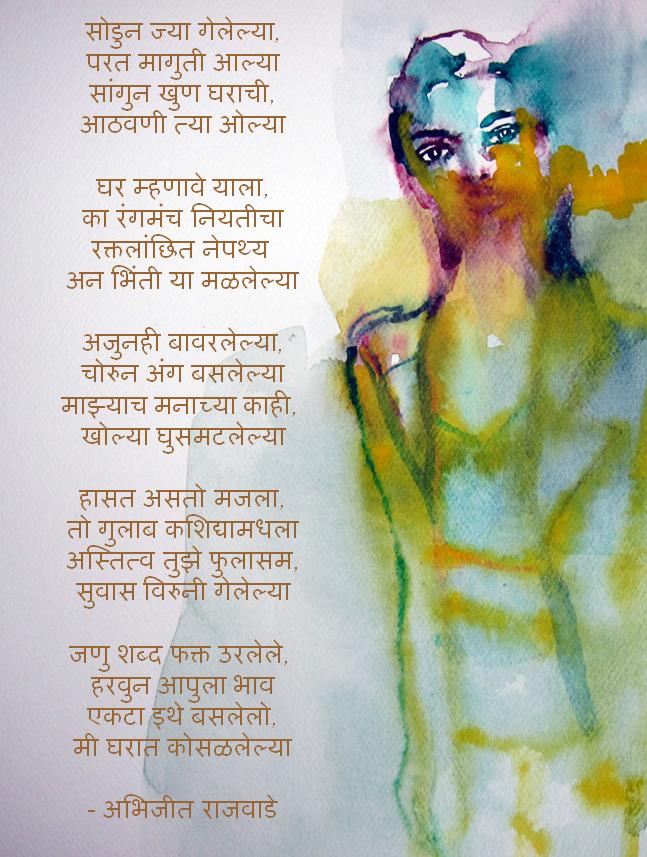 सोडुन ज्या गेलेल्या,
परत मागुती आल्या
सांगुन खुण घराची,
आठवणी त्या ओल्या
घर म्हणावे याला,
का रंगमंच नियतीचा
रक्तलांछित नेपथ्य
अन भिंती या मळलेल्या
अजुनही बावरलेल्या,
चोरुन अंग बसलेल्या
माझ्याच मनाच्या काही,
खोल्या घुसमटलेल्या
हासत असतो मजला,
तो गुलाब कशिद्यामधला
अस्तित्व तुझे फुलासम,
सुवास विरुनी गेलेल्या
जणु शब्द फक्त उरलेले,
हरवुन आपुला भाव
एकटा इथे बसलेलो,
मी घरात कोसळलेल्या
- अभिजीत राजवाडे